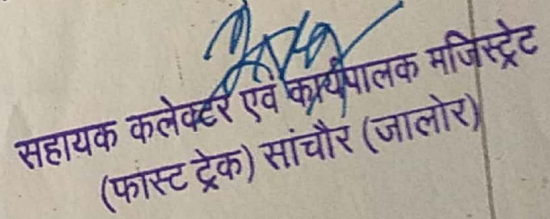 सहायक कलेक्टर एवं कार्यपालक मजिस्ट्रेट
(फास्ट ट्रेक) सांचौर (जालोर)